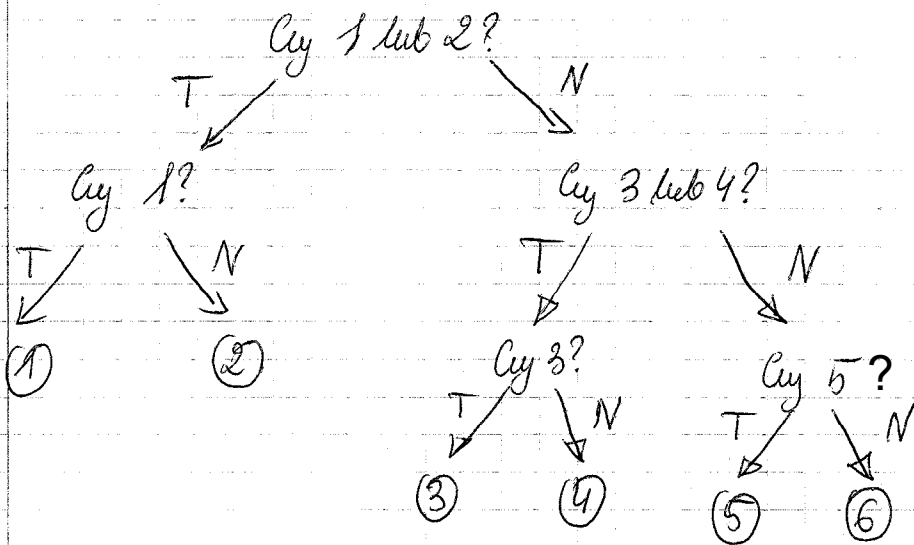 Czy 1 lub 2?
T N
Czy 1? Czy 3 lub 4?
T N T N
1 2 Czy 3? Czy 5?
T N T N
3 4 5 6